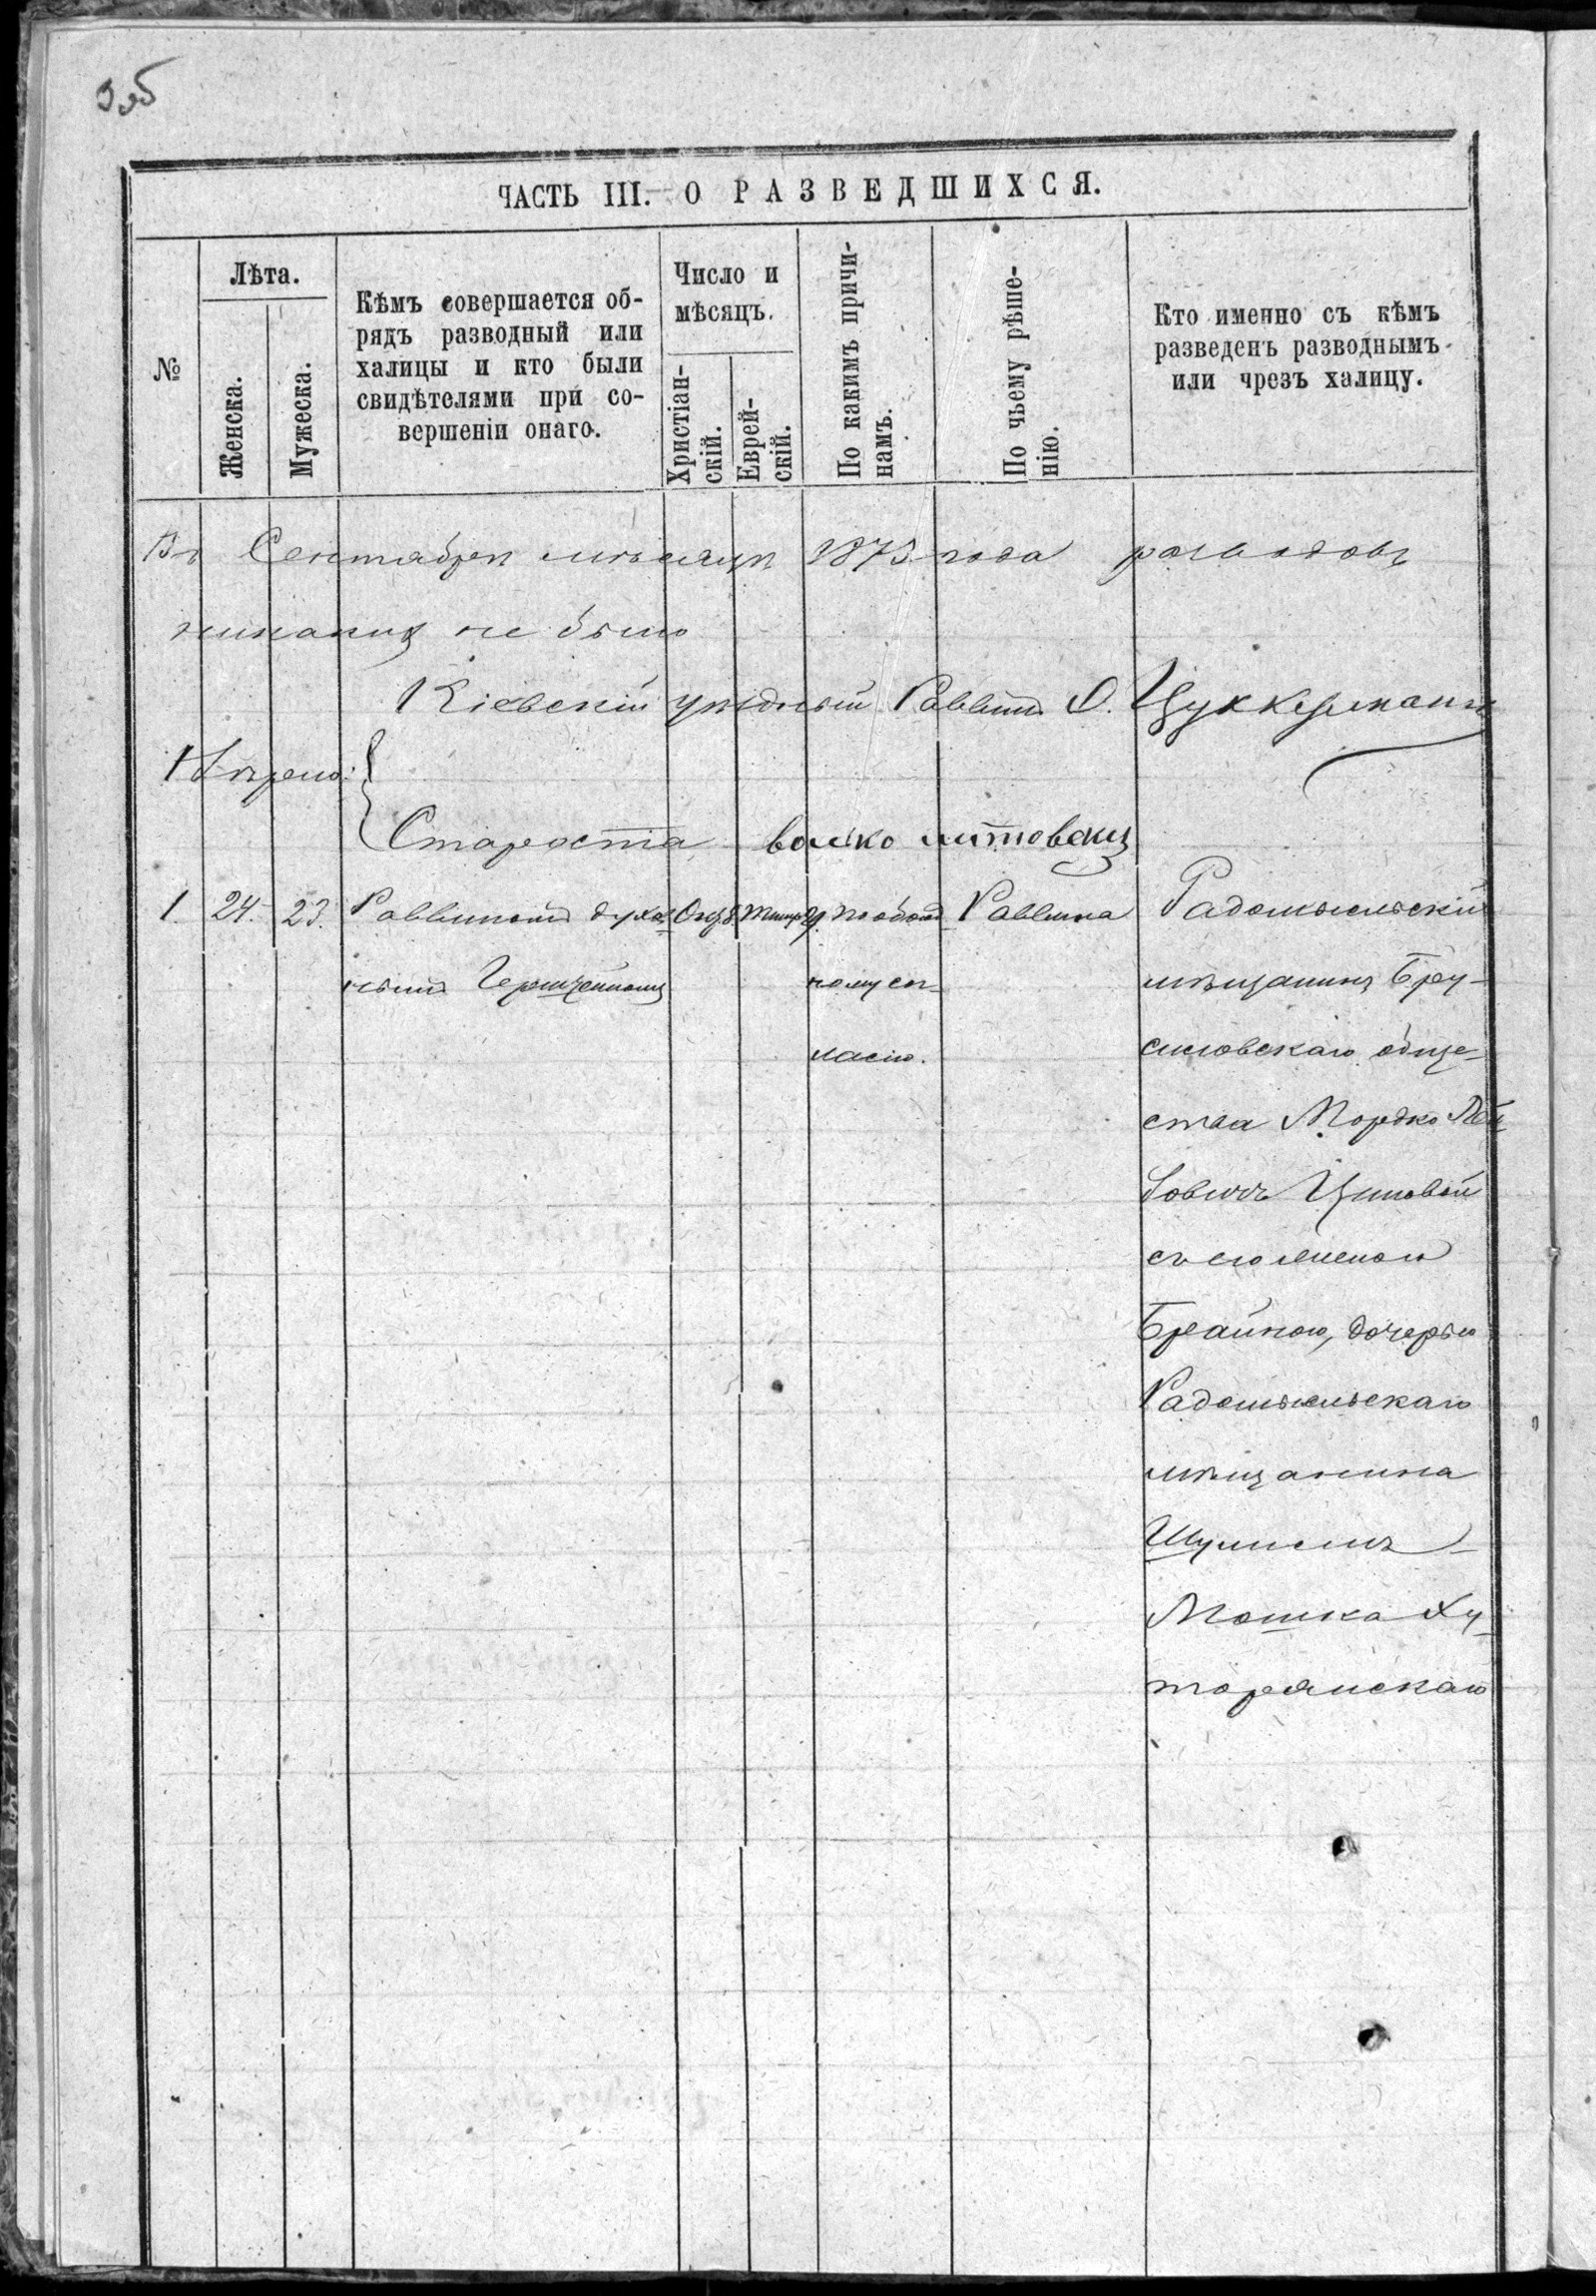 ЧАСТЬ III. О РАЗВЕДШИХСЯ.
№
Лѣта.
Женска.
Мужеска.
Кѣмъ совершается об-
рядъ разводный или
халицы и кто были
свидѣтелями при со-
вершеніи онаго.
Число и
мѣсяцъ.
Христіан-
скій.
Еврей-
скій.
По какимъ причи-
намъ.
По чьему рѣше-
нію.
Кто именно съ кѣмъ
разведенъ разводнымъ
или чрезъ халицу.
Въ Сентябрѣ мѣсяцѣ 1873 года разводовъ
никакихъ не было
Кіевскій уѣздный Раввинъ О. Цуккерманъ
Староста волько литовскихъ
1. 24. 23. Раввиномъ духов Окт 8 Тишр 29. по обоюд Раввина Радомысльскій
нымъ номусо- мѣщанинъ Бру-
гласію. силовскаго обще-
ства Мордко Лей
бовичъ Циновой
съ его женою
Брайною, дочерью
Радомысльскаго
мѣщанина
Шулима
Мошка Ху-
торянскаго